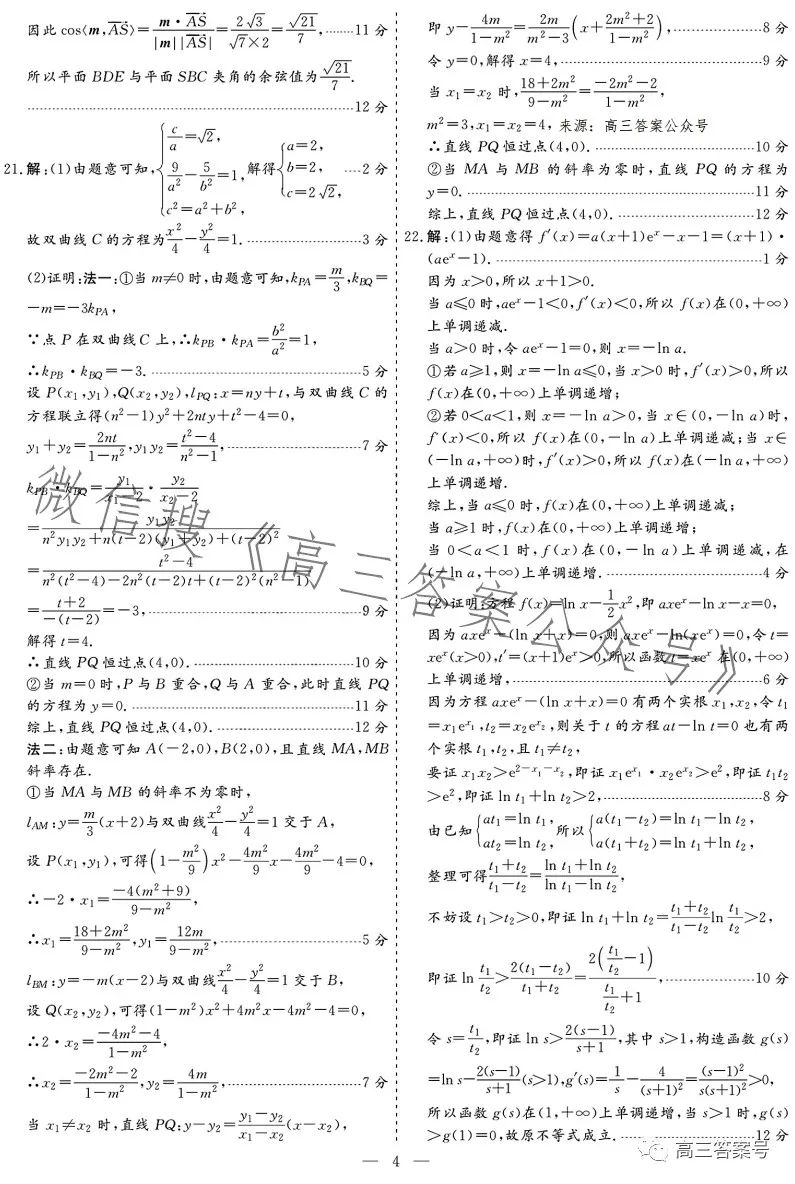 因此 cos⟨m,AS⟩=m·AS/|m||AS|=2√3/(√7×2)=√21/7,……11 分
所以平面 BDE 与平面 SBC 夹角的余弦值为√21/7.
……12 分
21.解:(1)由题意可知,{c/a=√2, 9/a²-5/b²=1, c²=a²+b², 解得{a=2, b=2, c=2√2, ……2 分
故双曲线 C 的方程为x²/4-y²/4=1. ……3 分
(2)证明:法一:①当 m≠0 时,由题意可知,k_PA=m/3,k_BQ=
-m=-3k_PA,
∵点 P 在双曲线 C 上,∴k_PB·k_PA=b²/a²=1,
∴k_PB·k_BQ=-3. ……5 分
设 P(x₁,y₁),Q(x₂,y₂),l_PQ:x=ny+t,与双曲线 C 的
方程联立得(n²-1)y²+2nty+t²-4=0,
y₁+y₂=2nt/(1-n²),y₁y₂=(t²-4)/(n²-1),……7 分
k_PB·k_BQ=y₁/(x₁-2)·y₂/(x₂-2)
=y₁y₂/(n²y₁y₂+n(t-2)(y₁+y₂)+(t-2)²)
=(t²-4)/(n²(t²-4)-2n²(t-2)t+(t-2)²(n²-1))
=(t+2)/(-(t-2))=-3,……9 分
解得 t=4.
∴直线 PQ 恒过点(4,0). ……10 分
②当 m=0 时,P 与 B 重合,Q 与 A 重合,此时直线 PQ
的方程为 y=0. ……11 分
综上,直线 PQ 恒过点(4,0). ……12 分
法二:由题意可知 A(-2,0),B(2,0),且直线 MA,MB
斜率存在.
①当 MA 与 MB 的斜率不为零时,
l_AM:y=m/3(x+2)与双曲线x²/4-y²/4=1 交于 A,
设 P(x₁,y₁),可得(1-m²/9)x²-4m²/9x-4m²/9-4=0,
∴-2·x₁=-4(m²+9)/(9-m²),
∴x₁=(18+2m²)/(9-m²),y₁=12m/(9-m²),……5 分
l_BM:y=-m(x-2)与双曲线x²/4-y²/4=1 交于 B,
设 Q(x₂,y₂),可得(1-m²)x²+4m²x-4m²-4=0,
∴2·x₂=(-4m²-4)/(1-m²),
∴x₂=(-2m²-2)/(1-m²),y₂=4m/(1-m²),……7 分
当 x₁≠x₂ 时,直线 PQ:y-y₂=(y₁-y₂)/(x₁-x₂)(x-x₂),
即 y-4m/(1-m²)=2m/(m²-3)(x+(2m²+2)/(1-m²)),……8 分
令 y=0,解得 x=4,……9 分
当 x₁=x₂ 时,(18+2m²)/(9-m²)=(-2m²-2)/(1-m²),
m²=3,x₁=x₂=4, 来源:高三答案公众号
∴直线 PQ 恒过点(4,0). ……10 分
②当 MA 与 MB 的斜率为零时,直线 PQ 的方程为
y=0. ……11 分
综上,直线 PQ 恒过点(4,0). ……12 分
22.解:(1)由题意得 f′(x)=a(x+1)eˣ-x-1=(x+1)·
(aeˣ-1). ……1 分
因为 x>0,所以 x+1>0.
当 a≤0 时,aeˣ-1<0,f′(x)<0,所以 f(x)在(0,+∞)
上单调递减.
当 a>0 时,令 aeˣ-1=0,则 x=-ln a.
①若 a≥1,则 x=-ln a≤0,当 x>0 时,f′(x)>0,所以
f(x)在(0,+∞)上单调递增;
②若 0<a<1,则 x=-ln a>0,当 x∈(0,-ln a)时,
f′(x)<0,所以 f(x)在(0,-ln a)上单调递减;当 x∈
(-ln a,+∞)时,f′(x)>0,所以 f(x)在(-ln a,+∞)
上单调递增.
综上,当 a≤0 时,f(x)在(0,+∞)上单调递减;
当 a≥1 时,f(x)在(0,+∞)上单调递增;
当 0<a<1 时,f(x)在(0,-ln a)上单调递减,在
(-ln a,+∞)上单调递增. ……4 分
(2)证明:方程 f(x)=ln x-1/2x²,即 axeˣ-ln x-x=0,
因为 axeˣ-(ln x+x)=0,则 axeˣ-ln(xeˣ)=0,令 t=
xeˣ(x>0),t′=(x+1)eˣ>0,所以函数 t=xeˣ 在(0,+∞)
上单调递增,……6 分
因为方程 axeˣ-(ln x+x)=0 有两个实根 x₁,x₂,令 t₁
=x₁e^x₁,t₂=x₂e^x₂,则关于 t 的方程 at-ln t=0 也有两
个实根 t₁,t₂,且 t₁≠t₂,
要证 x₁x₂>e^(2-x₁-x₂),即证 x₁e^x₁·x₂e^x₂>e²,即证 t₁t₂
>e²,即证 ln t₁+ln t₂>2,……8 分
由已知{at₁=ln t₁, at₂=ln t₂, 所以{a(t₁-t₂)=ln t₁-ln t₂, a(t₁+t₂)=ln t₁+ln t₂,
整理可得(t₁+t₂)/(t₁-t₂)=(ln t₁+ln t₂)/(ln t₁-ln t₂),
不妨设 t₁>t₂>0,即证 ln t₁+ln t₂=(t₁+t₂)/(t₁-t₂)ln t₁/t₂>2,
即证 ln t₁/t₂>2(t₁-t₂)/(t₁+t₂)=2(t₁/t₂-1)/(t₁/t₂+1),……10 分
令 s=t₁/t₂,即证 ln s>2(s-1)/(s+1),其中 s>1,构造函数 g(s)
=ln s-2(s-1)/(s+1)(s>1),g′(s)=1/s-4/(s+1)²=(s-1)²/(s(s+1)²)>0,
所以函数 g(s)在(1,+∞)上单调递增,当 s>1 时,g(s)
>g(1)=0,故原不等式成立. ……12 分
— 4 —
微信搜《高三答案公众号》
高三答案号